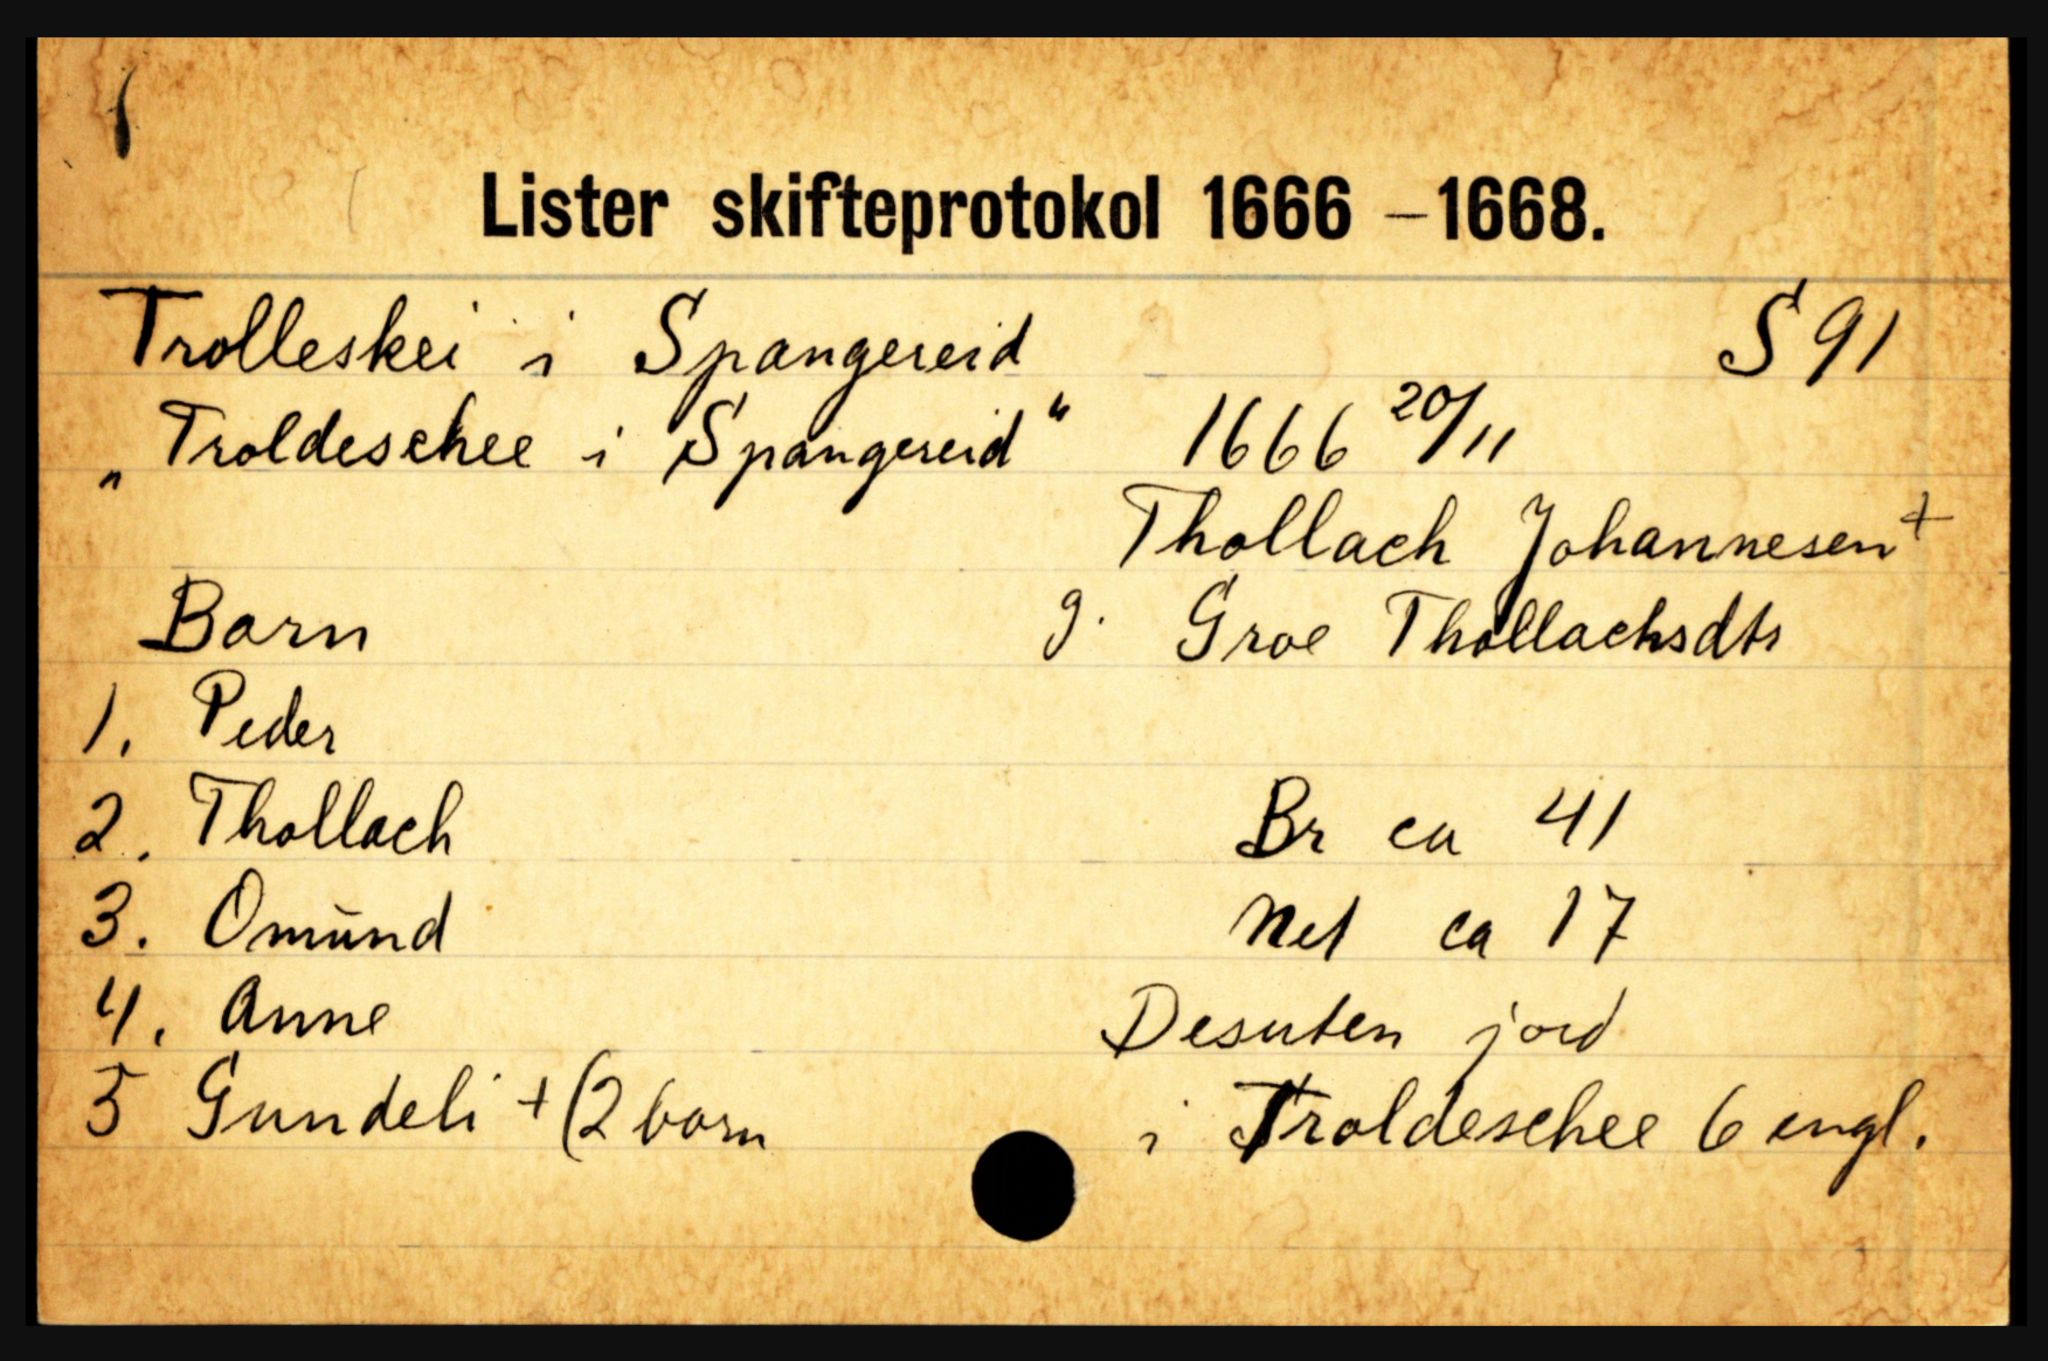 Lister skifteprotokol 1666 – 1668.
Trolleskei i Spangereid S 91
„Troldeschee i Spangereid“ 1666 20/11
Thollach Johannesen +
Born g. Groe Thollachsdtr
1. Peder
2. Thollach Br ca 41
3. Omūnd Net ca 17
4. Anne Desuten jord
5 Gundeli + (2 born i Troldeschee 6 engl.